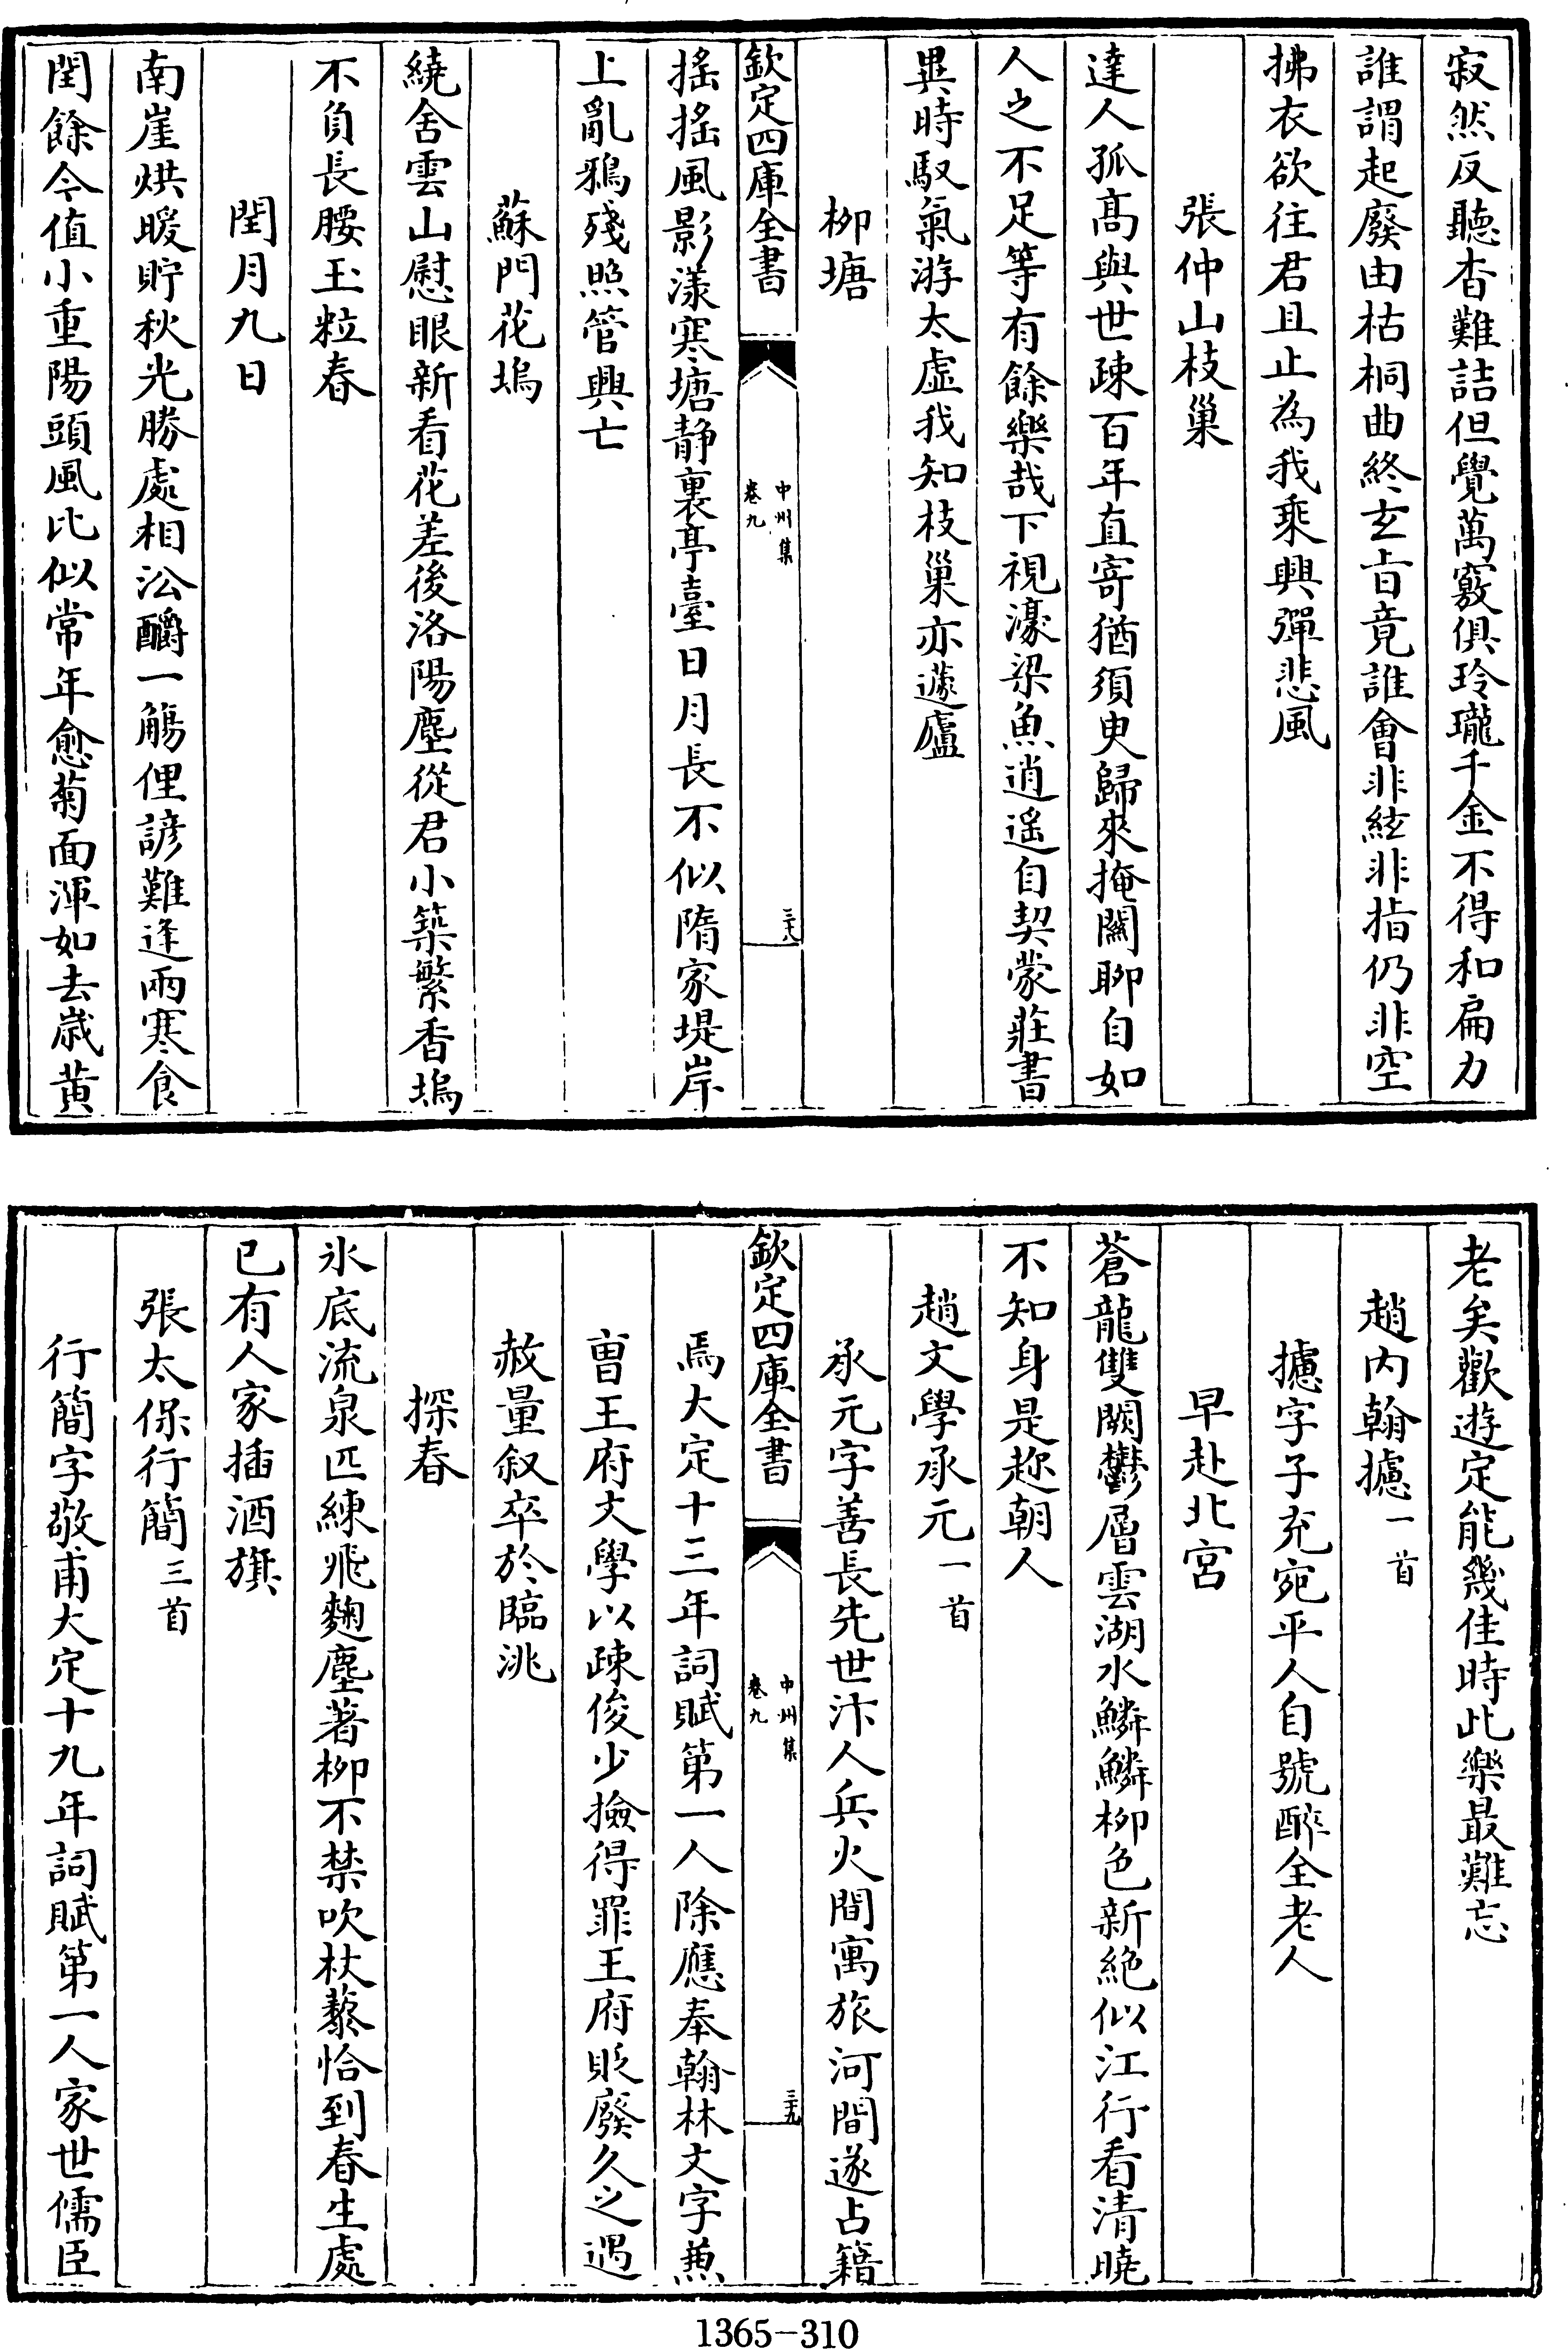 寂然反聽杳難詰但覺萬竅俱玲瓏千金不得和扁力
誰謂起廢由枯桐曲終玄㫖竟誰會非絃非指仍非空
拂衣欲往君且止為我乘興彈悲風
張仲山枝巢
達人孤髙與世疎百年直寄猶須臾歸來掩闗聊自如
人之不足等有餘樂哉下視濠梁魚逍遥自契蒙莊書
異時馭氣游太虛我知枝巢亦蘧廬
柳塘
欽定四庫全書
中州集
卷九
三十八
搖搖風影漾寒塘静裏亭臺日月長不似隋家堤岸
上亂鴉殘照管興亡
蘇門花塢
繞舍雲山慰眼新看花差後洛陽塵從君小築繁香塢
不負長腰玉粒春
閏月九日
南崖烘暖貯秋光勝處相沿釂一觴俚諺難逢兩寒食
閏餘今值小重陽頭風比似常年愈菊面渾如去歳黄
老矣歡遊定能幾佳時此樂最難忘
趙內翰攄一首
攄字子充宛平人自號醉全老人
早赴北宮
蒼龍雙闕鬱層雲湖水鱗鱗柳色新絶似江行看清曉
不知身是趂朝人
趙文學承元一首
承元字善長先世汴人兵火間寓旅河間遂占籍
欽定四庫全書
中州集
卷九
三十九
焉大定十三年詞賦第一人除應奉翰林文字兼
曺王府文學以疎俊少撿得罪王府貶廢久之遇
赦量叙卒於臨洮
探春
氷底流泉匹練飛麴塵著柳不禁吹杖藜恰到春生處
已有人家插酒旗
張太保行簡三首
行簡字敬甫大定十九年詞賦第一人家世儒臣
1365-310